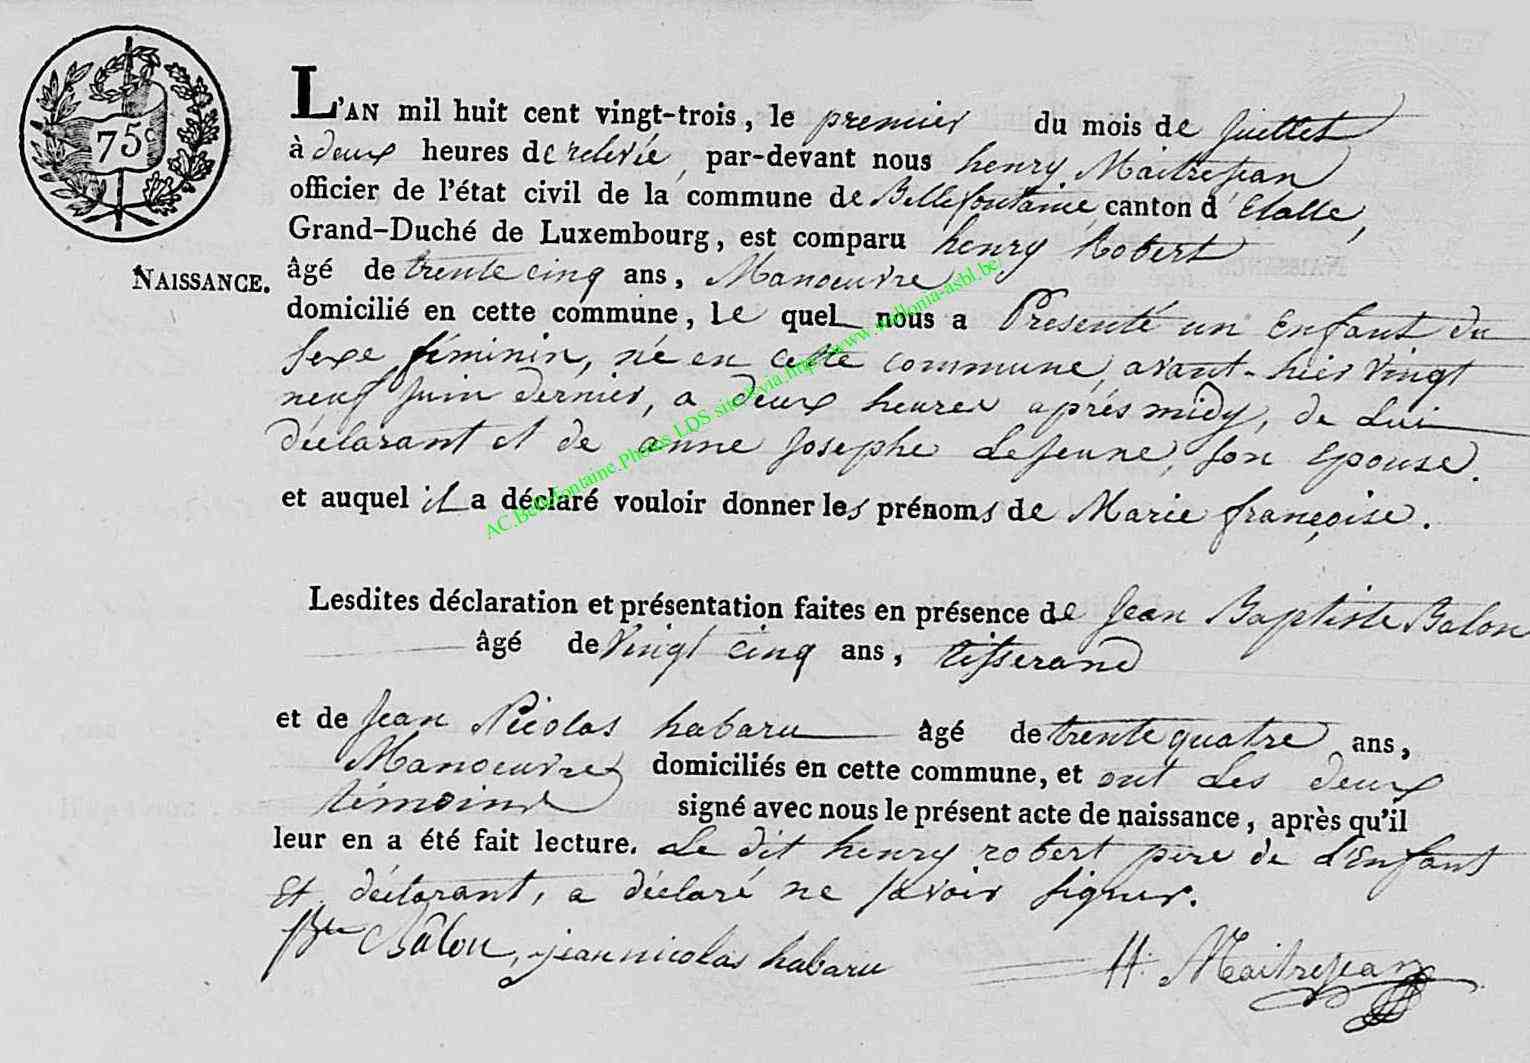 75c
L'AN mil huit cent vingt-trois, le premier du mois de Juillet
à deux heures de relevée, par-devant nous henry Maitrejean
officier de l'état civil de la commune de Bellefontaine canton d'Etalle,
Grand-Duché de Luxembourg, est comparu henry Robert
NAISSANCE. âgé de trente cinq ans, Manoeuvre
domicilié en cette commune, le quel nous a Presenté un Enfant du
Sexe féminin, né en cette commune, avant-hier vingt
neuf Juin dernier, a deux heures après midy, de Lui
déclarant et de anne Josephe LeJeune, son Epouse.
et auquel il a déclaré vouloir donner les prénoms de Marie françoise.
AC.Bellefontaine.Photos LDS site via http://www.wallonia-asbl.be/
Lesdites déclaration et présentation faites en présence de Jean Baptiste Balon
âgé de vingt cinq ans, tisserand
et de Jean Nicolas habaru âgé de trente quatre ans,
Manoeuvre domiciliés en cette commune, et ont Les deux
témoins signé avec nous le présent acte de naissance, après qu'il
leur en a été fait lecture. Le dit henry robert pere de L'Enfant
Et déclarant, a déclaré ne savoir signer.
Bte Bâlon, jean nicolas habaru H. Maitrejean